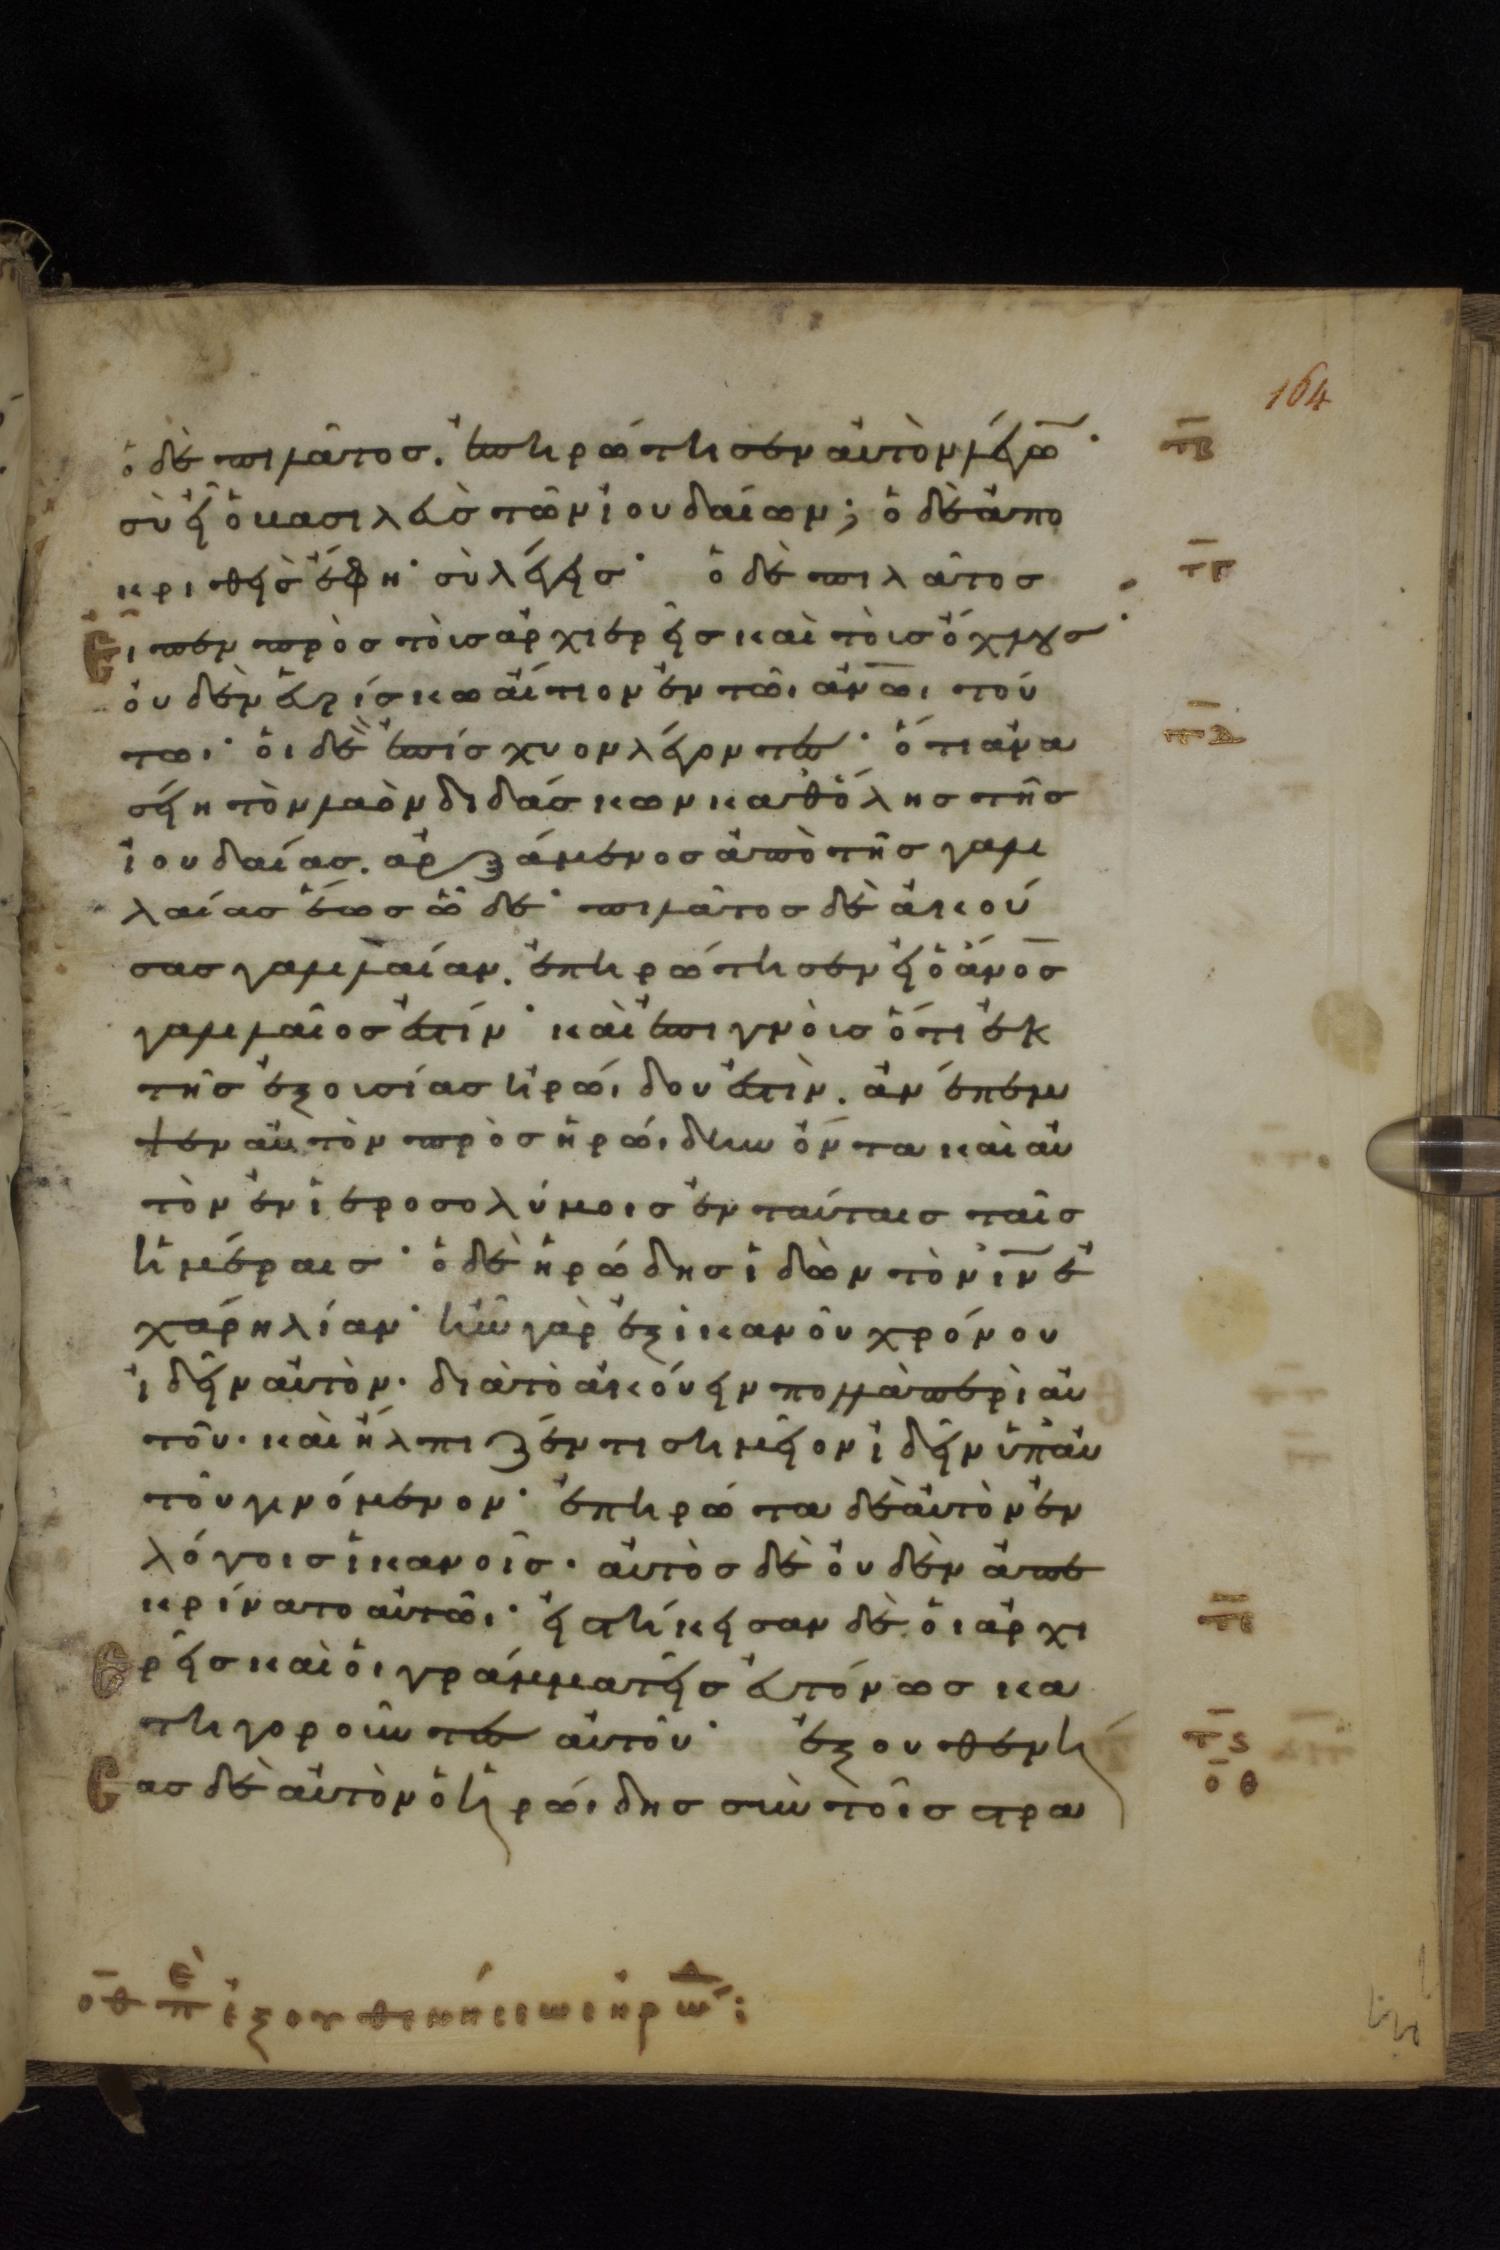 164
ὁ δὲ πιλᾶτος. ἐπηρώτησεν αὐτὸν λέγω̅·
σὺ εἶ ὁ βασιλεὺς τῶν ἰουδαίων; ὁ δὲ ἀπο
κριθεὶς ἔφη· σὺ λέγεις· ὁ δὲ πιλᾶτος
εἶπεν πρὸς τοὺς ἀρχιερεῖς καὶ τοὺς ὄχλους·
οὐδὲν εὑρίσκω αἴτιον ἐν τῶι ἀν̅ω̅ι τού
τωι· οἱ δὲ ἐπίσχυον λέγοντες· ὅτι ἀνα
σείη τὸν λαὸν διδάσκων καθ ὅλης τῆς
ἰουδαίας. ἀρξάμενος ἀπὸ τῆς γαλι
λαίας ἕως ὧδε· πιλᾶτος δὲ ἀκού
σας γαλιλαίαν. ἐπηρώτησεν εἰ ὁ ἀν̅ο̅ς̅
γαλιλαῖος ἐστίν· καὶ ἐπιγνοὺς ὅτι ἐκ
τῆς ἐξουσίας ἡρώιδου ἐστὶν. ἀνέπεμ
ψεν αὐτὸν πρὸς ἡρώιδην ὄντα καὶ αὐ
τὸν ἐν ἱεροσολύμοις ἐν ταύταις ταῖς
ἡμέραις· ὁ δὲ ἡρώδης ἰδὼν τὸν ι̅ν̅ ἐ
χάρη λίαν· ἦν γὰρ ἐξ ἱκανοῦ χρόνου
ἰδεῖν αὐτὸν· διὰ τὸ ἀκούειν πολλὰ περὶ αὐ
τοῦ· καὶ ἤλπιζέν τι σημεῖον ἰδεῖν ὑπ αὐ
τοῦ γινόμενον· ἐπηρώτα δὲ αὐτὸν ἐν
λόγοις ἱκανοῖς· αὐτὸς δὲ οὐδὲν ἀπε
κρίνατο αὐτῶι· εἱστήκεισαν δὲ οἱ ἀρχι
ερεῖς καὶ οἱ γραμματεῖς εὐτόνως κα
τηγοροῦντες αὐτοῦ· ἐξουθενή
σας δὲ αὐτὸν ὁ ἡρώιδης σὺν τοῖς στρα
ο̅θ̅